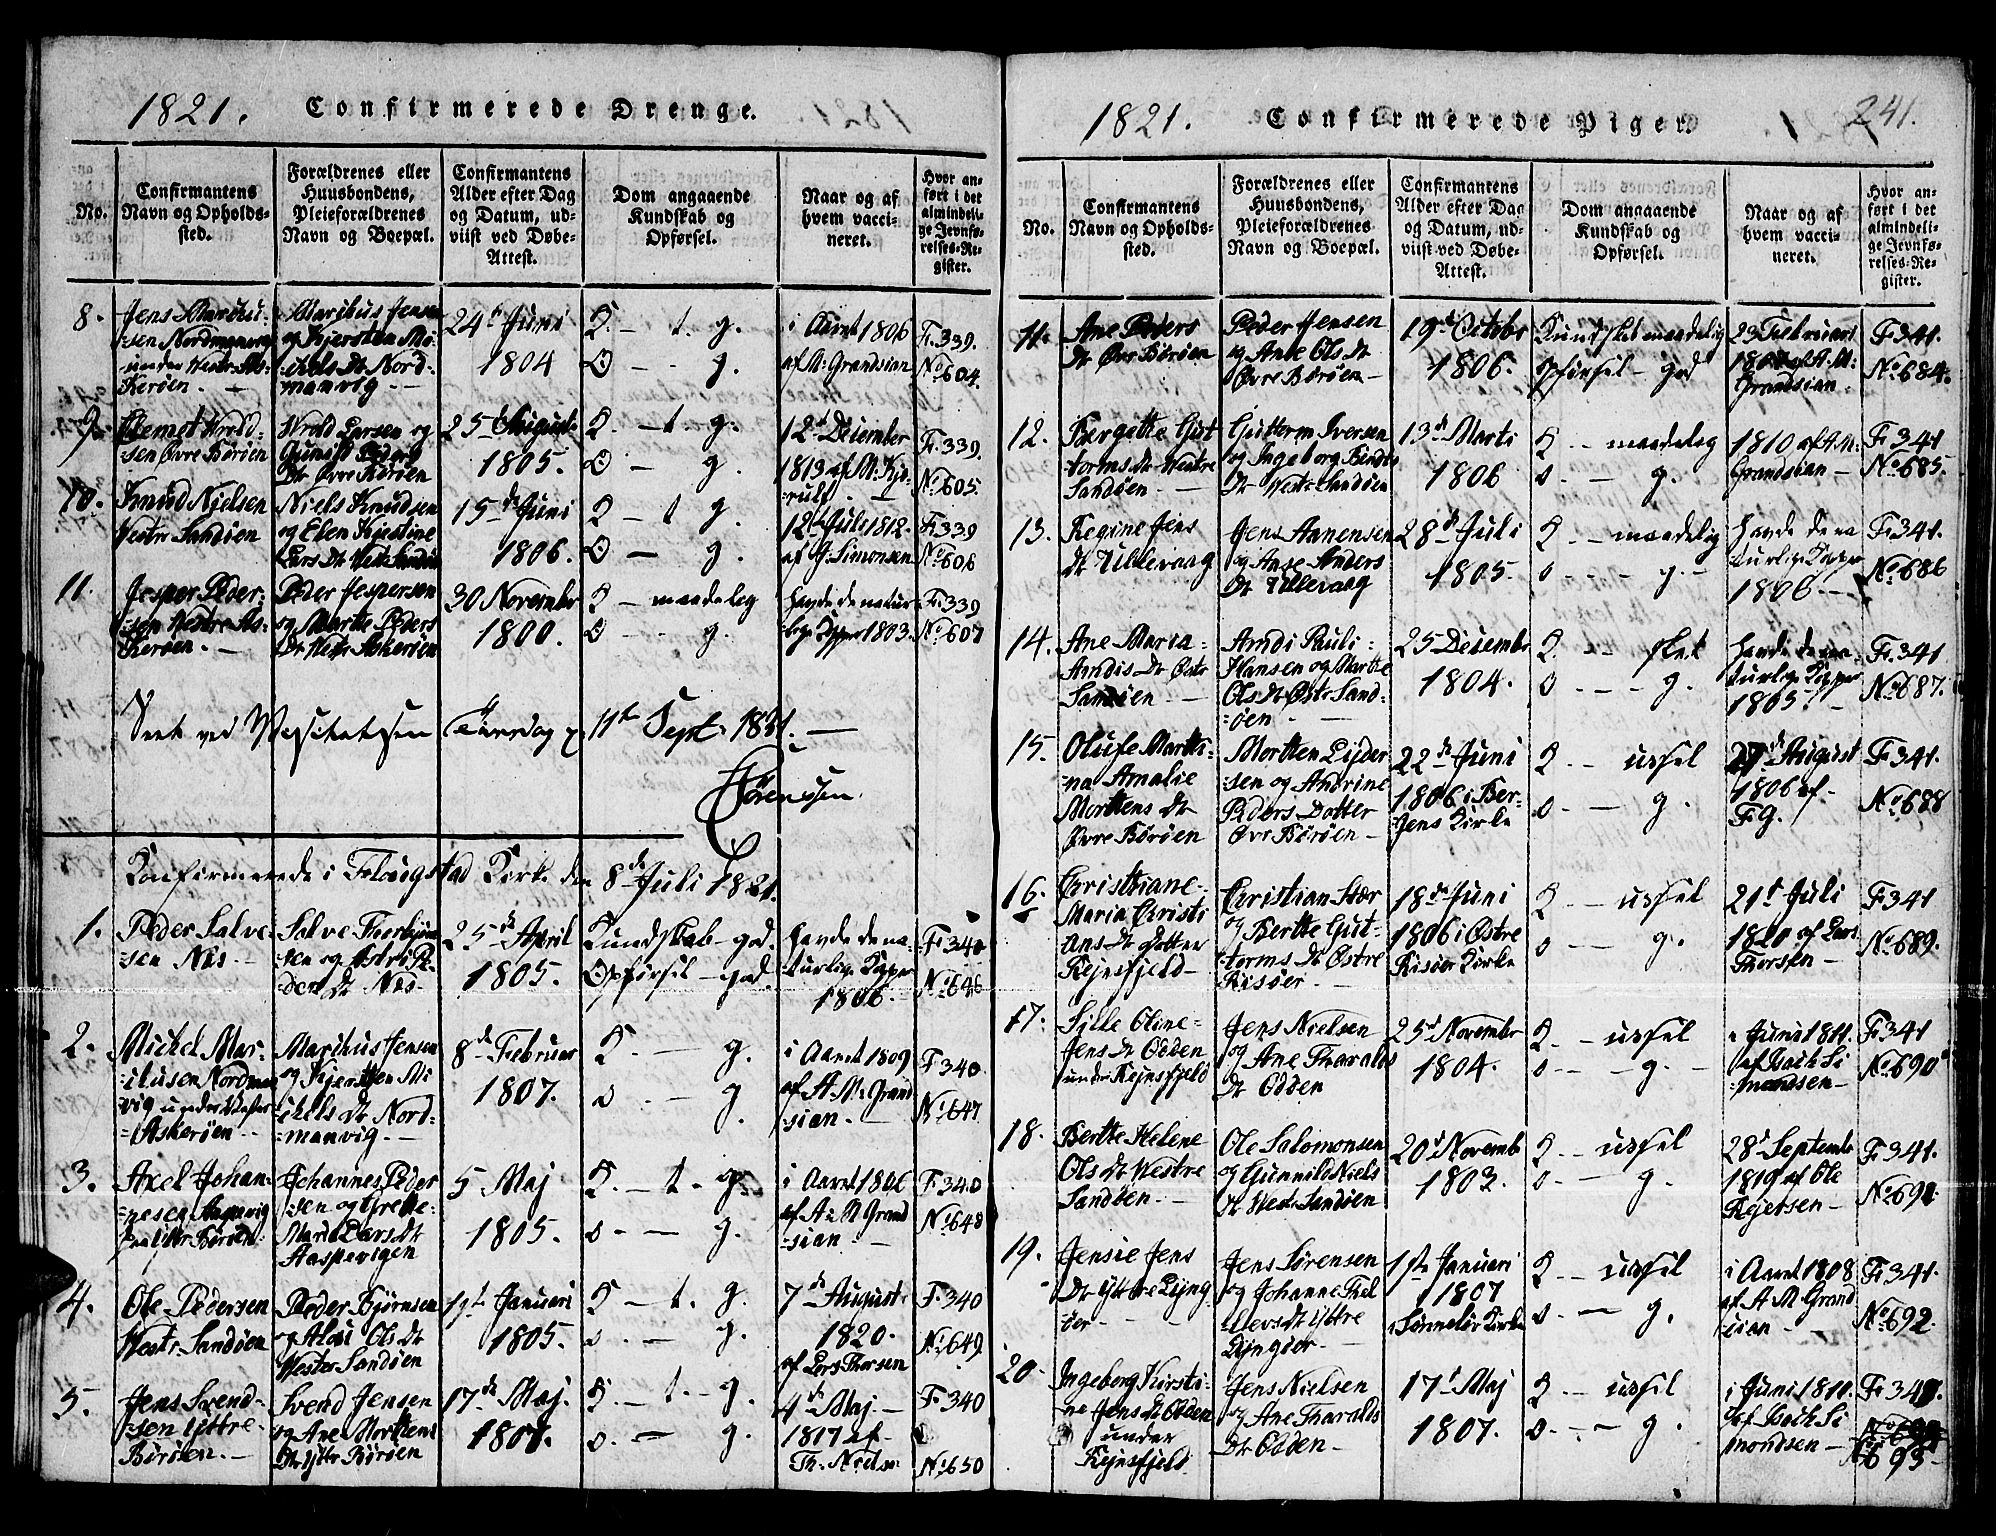 1821. Confirmerede Drenge.
No.
Confirmantens
Navn og Opholds-
sted.
Forældrenes eller
Huusbondens,
Pleieforældrenes
Navn og Boepæl.
Confirmantens
Alder efter Dag
og Datum, ud-
viist ved Døbe-
Attest.
Dom angaaende
Kundskab og
Opførsel.
Naar og af
hvem vacci-
neret.
Hvor an-
ført i det
almindeli-
ge Jevnfø-
relses-Re-
gister.
8.
Jens Marcku-
sen
under Westr As-
kerøen.
Marikus Jensen
og Kjersten Mi-
ckels Dr Nord-
manvig
24d Juni
1804
K. - t. g.
O - - g.
i Aaret 1806
af M. Grandsian
F. 339.
No 604.
9.
sen Øvre Børøen
Wrold Larsen og
Peders
Dr Øvre Børøen
25 August
1805.
K. - t. g.
O - g.
12d December
1813 af M. Kje-
rulf
F. 339.
No 605.
10.
Knud Nielsen
Westr Sandøen
Niels Knudsen
og Elen Kjestine
Lars Dr Westr Sandøe
15de Juni
1806.
K - t g.
O - g.
12d Juli 1812
af J. Simonsen
F. 339
No 606
11.
Jesper Peder-
sen Westre As-
kerøen.
Peder Jespersen
og Marthe Peders
Dr Westr Askerøen
30 Novembr
1800.
K - maadeleg
O - - g.
havde de natur-
lige Kopper 1803.
F. 339
No 607
Seet ved Visitatsen Tiirsdag d. 11te Sept. 1821.
Sørenssen
Konfirmerede i Flougstad Kirke den 8de Juli 1821.
1.
Peder Salve-
sen Næs
Salve Torbjørn-
sen og Astri Pe-
ders Dr Næs
25de April
1805.
Kundskab - god.
Opførsel - god.
havde de na-
turlige Kopper
1806.
F. 340
No 646
2.
Mickel Mar-
ikusen Nordman
vig under Wester
Askerøen.
Marikus Jensen
og Kjersten Mi
ckels Dr Nord-
manvig.
8de Februar
1807.
K. - - g.
o. - g.
i Aaret 1809
af A. M. Grand
sian.
F. 340.
No 647
3.
Axel Johan-
nesen Aaspevig
paa Ittr Børøen
Johannes Peder
sen og Grethe
Maria Lars Dr
Aaspevigen
5 Maj
1805.
K. - t. g.
o - - g.
i Aaret 1806
af A. M. Grand
sian.
F. 340
No 648
4.
Ole Pedersen
Westr. Sandøen
Peder Bjørnsen
og Ols Dr
Wester Sandøen
19d Januari
1805.
K - t. g.
o. - g.
7d August
1820.
af Lars Thorsen
F. 340
No 649
5.
Jens Svend-
sen Yttre
Børøen.
Svend Jensen
og Ane Morttens
Dr Yttr Børøen
17de Maj.
1807.
K - t. - g.
o. - g.
4de Maj
1817 af
Th. Nielsen
F. 340
No 650
1821. Confirmerede Piger. 241.
No.
Confirmantens
Navn og Opholds-
sted.
Forældrenes eller
Huusbondens,
Pleieforældrenes
Navn og Boepæl.
Confirmantens
Alder efter Dag
og Datum, ud-
viist ved Døbe-
Attest.
Dom angaaende
Kundskab og
Opførsel.
Naar og af
hvem vacci-
neret.
Hvor an-
ført i det
almindeli-
ge Jevnfø-
relses-Re-
gister.
11.
Ane Peders
Dr Øvr Børøen
Peder Jensen
og Ane Ols Dr
Øvre Børøen
19d Octobr
1806.
Kundskab maadelig
Opførsel - god
23 Februari
af A. M.
Grandsian
F. 341.
No 684.
12.
Bergitte Gut
torms Dr Westre
Sandøen
Gutterm Iversen
og Ingeborg Bendts
Dr Westr Sandøen
13d Marts
1806
K - - maadeleg
o - g.
1810 af A. M.
Grandsian
F. 341
No 685.
13.
Regine Jens
Dr Ullevaag
Jens Aanensen
og Anne Anders
Dr Ullevaag
28d Juli
1805.
K - - maadelig
o - - - g -
havde de na
turlige Kopper
1806.
F. 341.
No 686
14.
Ane Maria
Arndis Dr Østr
Sandøen
Arndi Pauli
Hansen og Marthe
Ols Dr Østr Sand-
øen
25 Decembr
1804.
K. - - slet
o - - - g.
havde de na-
turlige Kopper
1805.
F. 341
No 687.
15.
Olufe Marthi-
na Amalie
Morttens Dr
Øvre Børøen
Mortten Eijder
sen og Andrine
Peders Dotter
Øvr Børøen
22de Juni
1806 i Ber-
gens Kirke
K - - ussel
o. - - g.
27d August
1806 af
F. G.
F. 341.
No 688
16.
Christiane
Maria Christi
ans Dr Dotter
Rejnsfjeld
Christian Stær
og Berthe Gut-
torms Dr Østre
Risøer.
18de Juni
1806 i Østre
Risøer Kirke
K - - ussel
o - - g.
21d Juli
1820 af Lars
Thorsen
F. 341
No 689.
17.
Sille Oline
Jens Dr Odden
under Rejnsfjeld
Jens Nielsen
og Ane Tharalds
Dr Odden
25d Novembr
1804.
K - - ussel
o - - g. -
i Juni 1811.
af Isach Si
mondsen
F. 341
No 690
18.
Berthe Helene
Ols Dr Westre
Sandøen
Ole Salomonsen
og Gunnild Niels
Dr Westr Sandøen
20d Novemb
1803.
K - - ussel
o. - - g.
28d Septembr
1819 af Ole
Rejersen
F. 341.
No 691.
19.
Jensie Jens
Dr Yttre Lijng-
øer
Jens Sørensen
og Johanne Tel
levs Dr Yttre
Lijngøer
1ste Januari
1807
i Sønneløv Kirke
K - - ussel
o - - g.
i Aaret 1808
af A M Grand
sian
F. 341.
No 692.
20.
Ingeborg Kirsti-
ne Jens Dr Odden
under
Rejnsfjeld
Jens Nielsen
og Ane Tharalds
Dr Odden
17d Maj
1807.
K - - ussel
o. - - g.
i Juni 1811.
af Isach Si
mondsen
F. 341.
No 693.